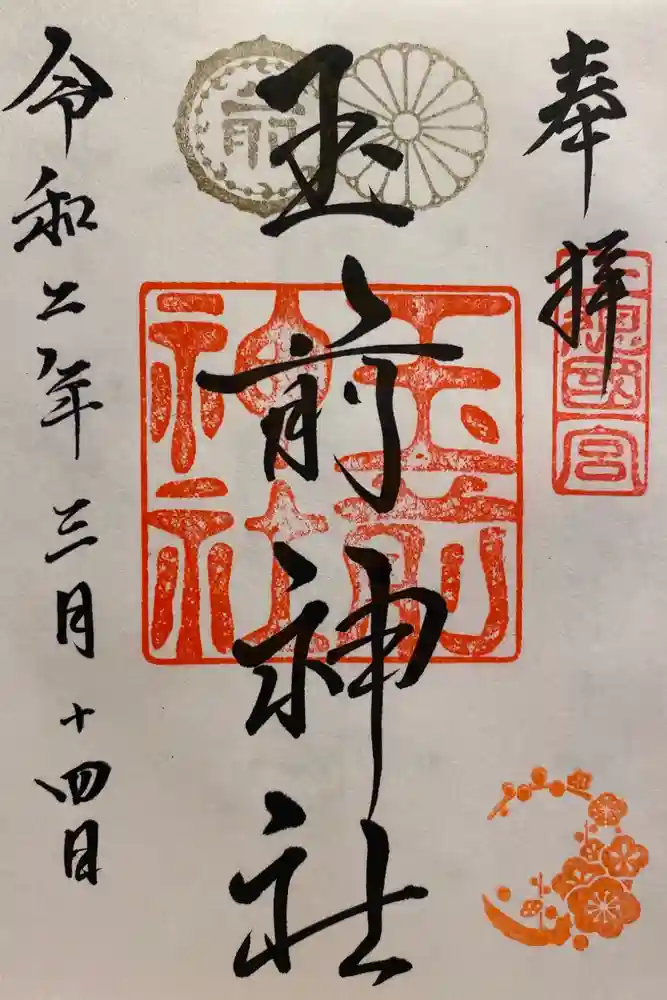 奉拝
上總國一宮
前
玉前神社
玉前
神社
令和二年三月十四日